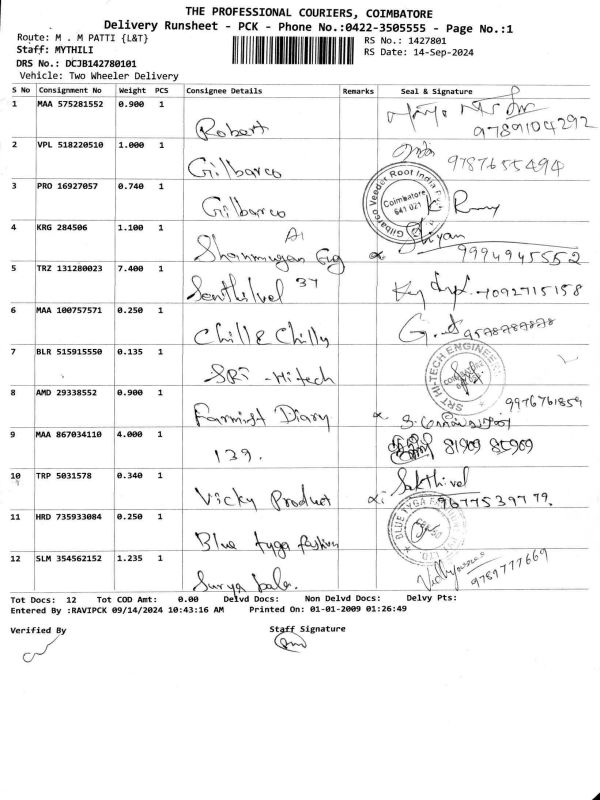 THE PROFESSIONAL COURIERS, COIMBATORE
Delivery Runsheet - PCK - Phone No.:0422-3505555 - Page No.:1
Route: M . M PATTI {L&T}
RS No.: 1427801
Staff: MYTHILI
RS Date: 14-Sep-2024
DRS No.: DCJB142780101
Vehicle: Two Wheeler Delivery
S No Consignment No Weight PCS Consignee Details Remarks Seal & Signature
1 MAA 575281552 0.900 1 Robert
9789104292
2 VPL 518220510 1.000 1 Gilbarco
9787655494
3 PRO 16927057 0.740 1 Gilbarco
Gilbarco Veeder Root India
Coimbatore
641 021
4 KRG 284506 1.100 1 Shanmugan Eng
9994945552
5 TRZ 131280023 7.400 1 Senthilvel 37
7092715158
6 MAA 100757571 0.250 1 Chill & Chilly
9578787878
7 BLR 515915550 0.135 1 SRI - Hitech
SRT HI-TECH ENGINEE
8 AMD 29338552 0.900 1 Farmist Diary
9976761859
9 MAA 867034110 4.000 1 139.
81909 85969
10 TRP 5031578 0.340 1 Vicky Product
Sakthivel
9677539779.
11 HRD 735933084 0.250 1 Blue tyga fashion
BLUE TYGA
12 SLM 354562152 1.235 1 Surya bala.
9789777669
Tot Docs: 12 Tot COD Amt: 0.00 Delvd Docs: Non Delvd Docs: Delvy Pts:
Entered By :RAVIPCK 09/14/2024 10:43:16 AM Printed On: 01-01-2009 01:26:49
Verified By Staff Signature